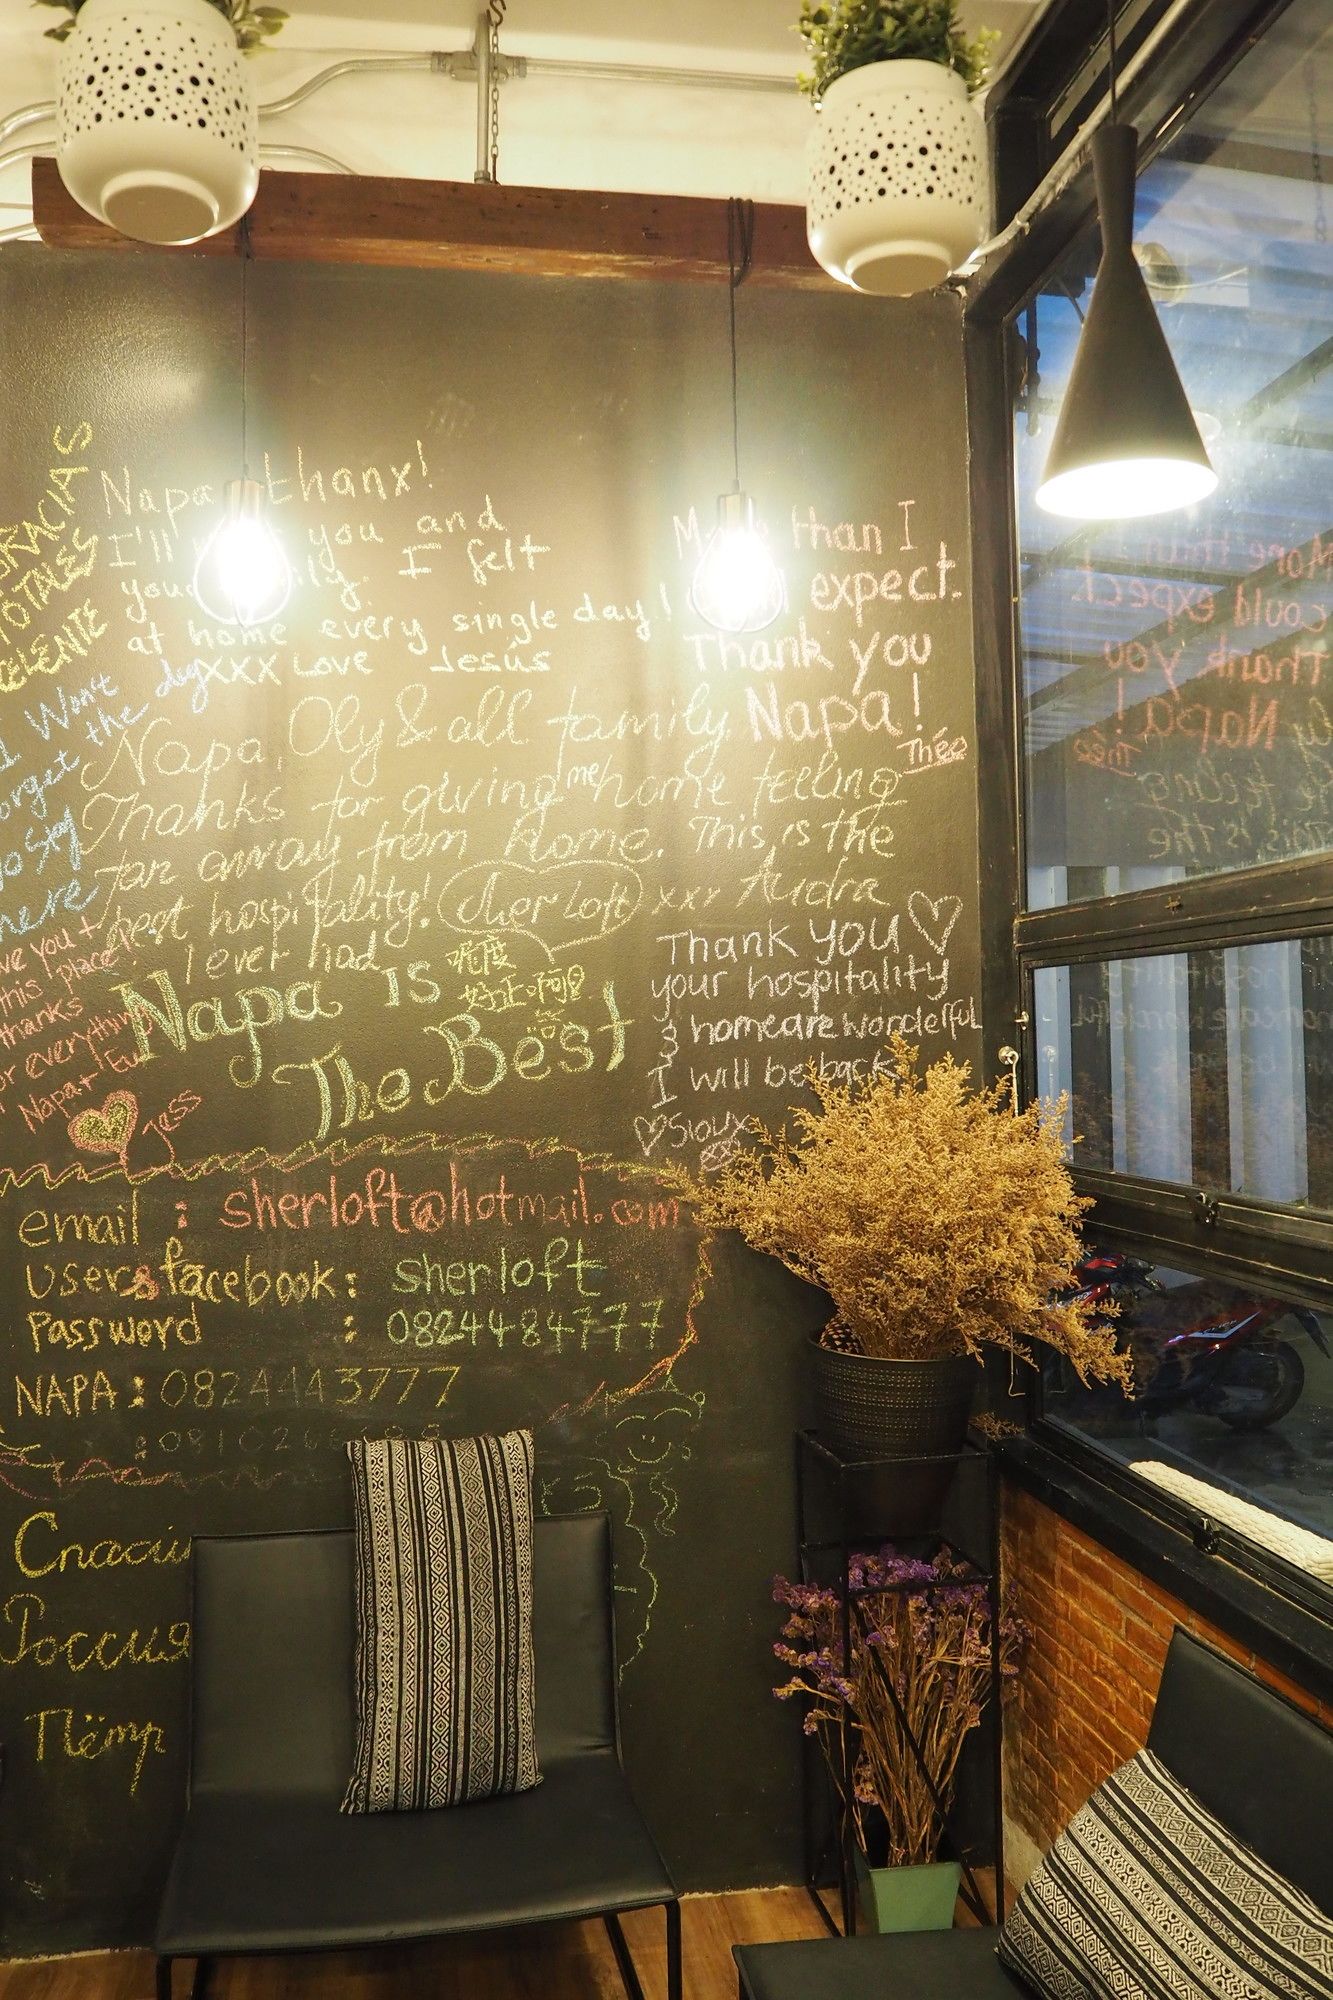 GRACIAS
TOTALES
Napa thanx!
I'll you and
I felt
at home every single day!
XXX Love Jesús
More than I
expect.
Thank you
Napa!
Théo
I Won't
forget the day
here
Napa, Oly & all family
Thanks for giving me home feeling
far away from home. This is the
best hospitality! Sher Loft xxx Audra
I ever had
this place
thanks
for everything
Napa+
Jess
Napa is
The Best
好正啊
Thank you
your hospitality
& homecare wonderful
I will be back
Sioux
email : sherloft@hotmail.com
Users facebook : sherloft
Password : 0824484777
NAPA : 0824443777
Спасии
Россия
Пётр